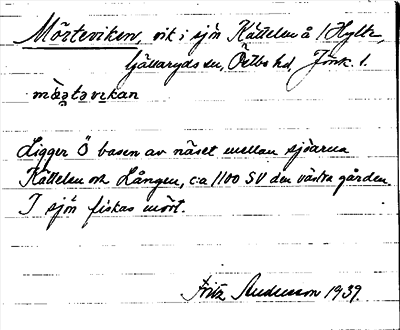 Mörteviken, vik i sjön Kättelen å 1 Hylte,
Gällaryds sn, Östbo hd, Jönk. l.
mœ̣tavikan
Ligger Ö basen av näset mellan sjöarna
Kättelen och Lången, c:a 1100 SV den västra gården.
I sjön fiskas mört.
Fritz Andersson 1939.